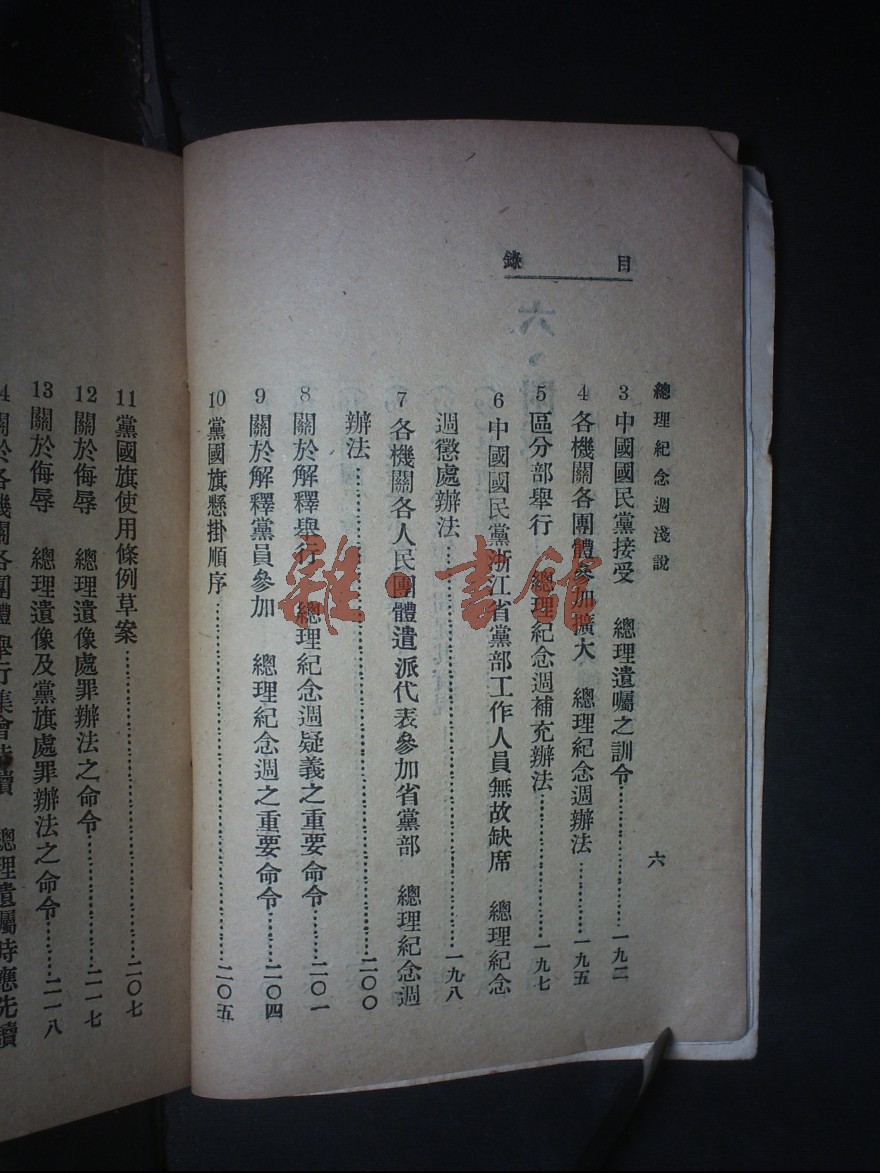 目錄
總理紀念週淺說
六
3 中國國民黨接受 總理遺囑之訓令……一九二
4 各機關各團體參加擴大 總理紀念週辦法……一九五
5 區分部舉行 總理紀念週補充辦法……一九七
6 中國國民黨浙江省黨部工作人員無故缺席 總理紀念
週懲處辦法……一九八
7 各機關各人民團體遣派代表參加省黨部 總理紀念週
辦法……二〇〇
8 關於解釋舉行 總理紀念週疑義之重要命令……二〇一
9 關於解釋黨員參加 總理紀念週之重要命令……二〇四
10 黨國旗懸掛順序……二〇五
11 黨國旗使用條例草案……二〇七
12 關於侮辱 總理遺像處罪辦法之命令……二一七
13 關於侮辱 總理遺像及黨旗處罪辦法之命令……二一八
關於各機關各團體舉行集會 讀 總理遺囑時應先讀
雜·書館